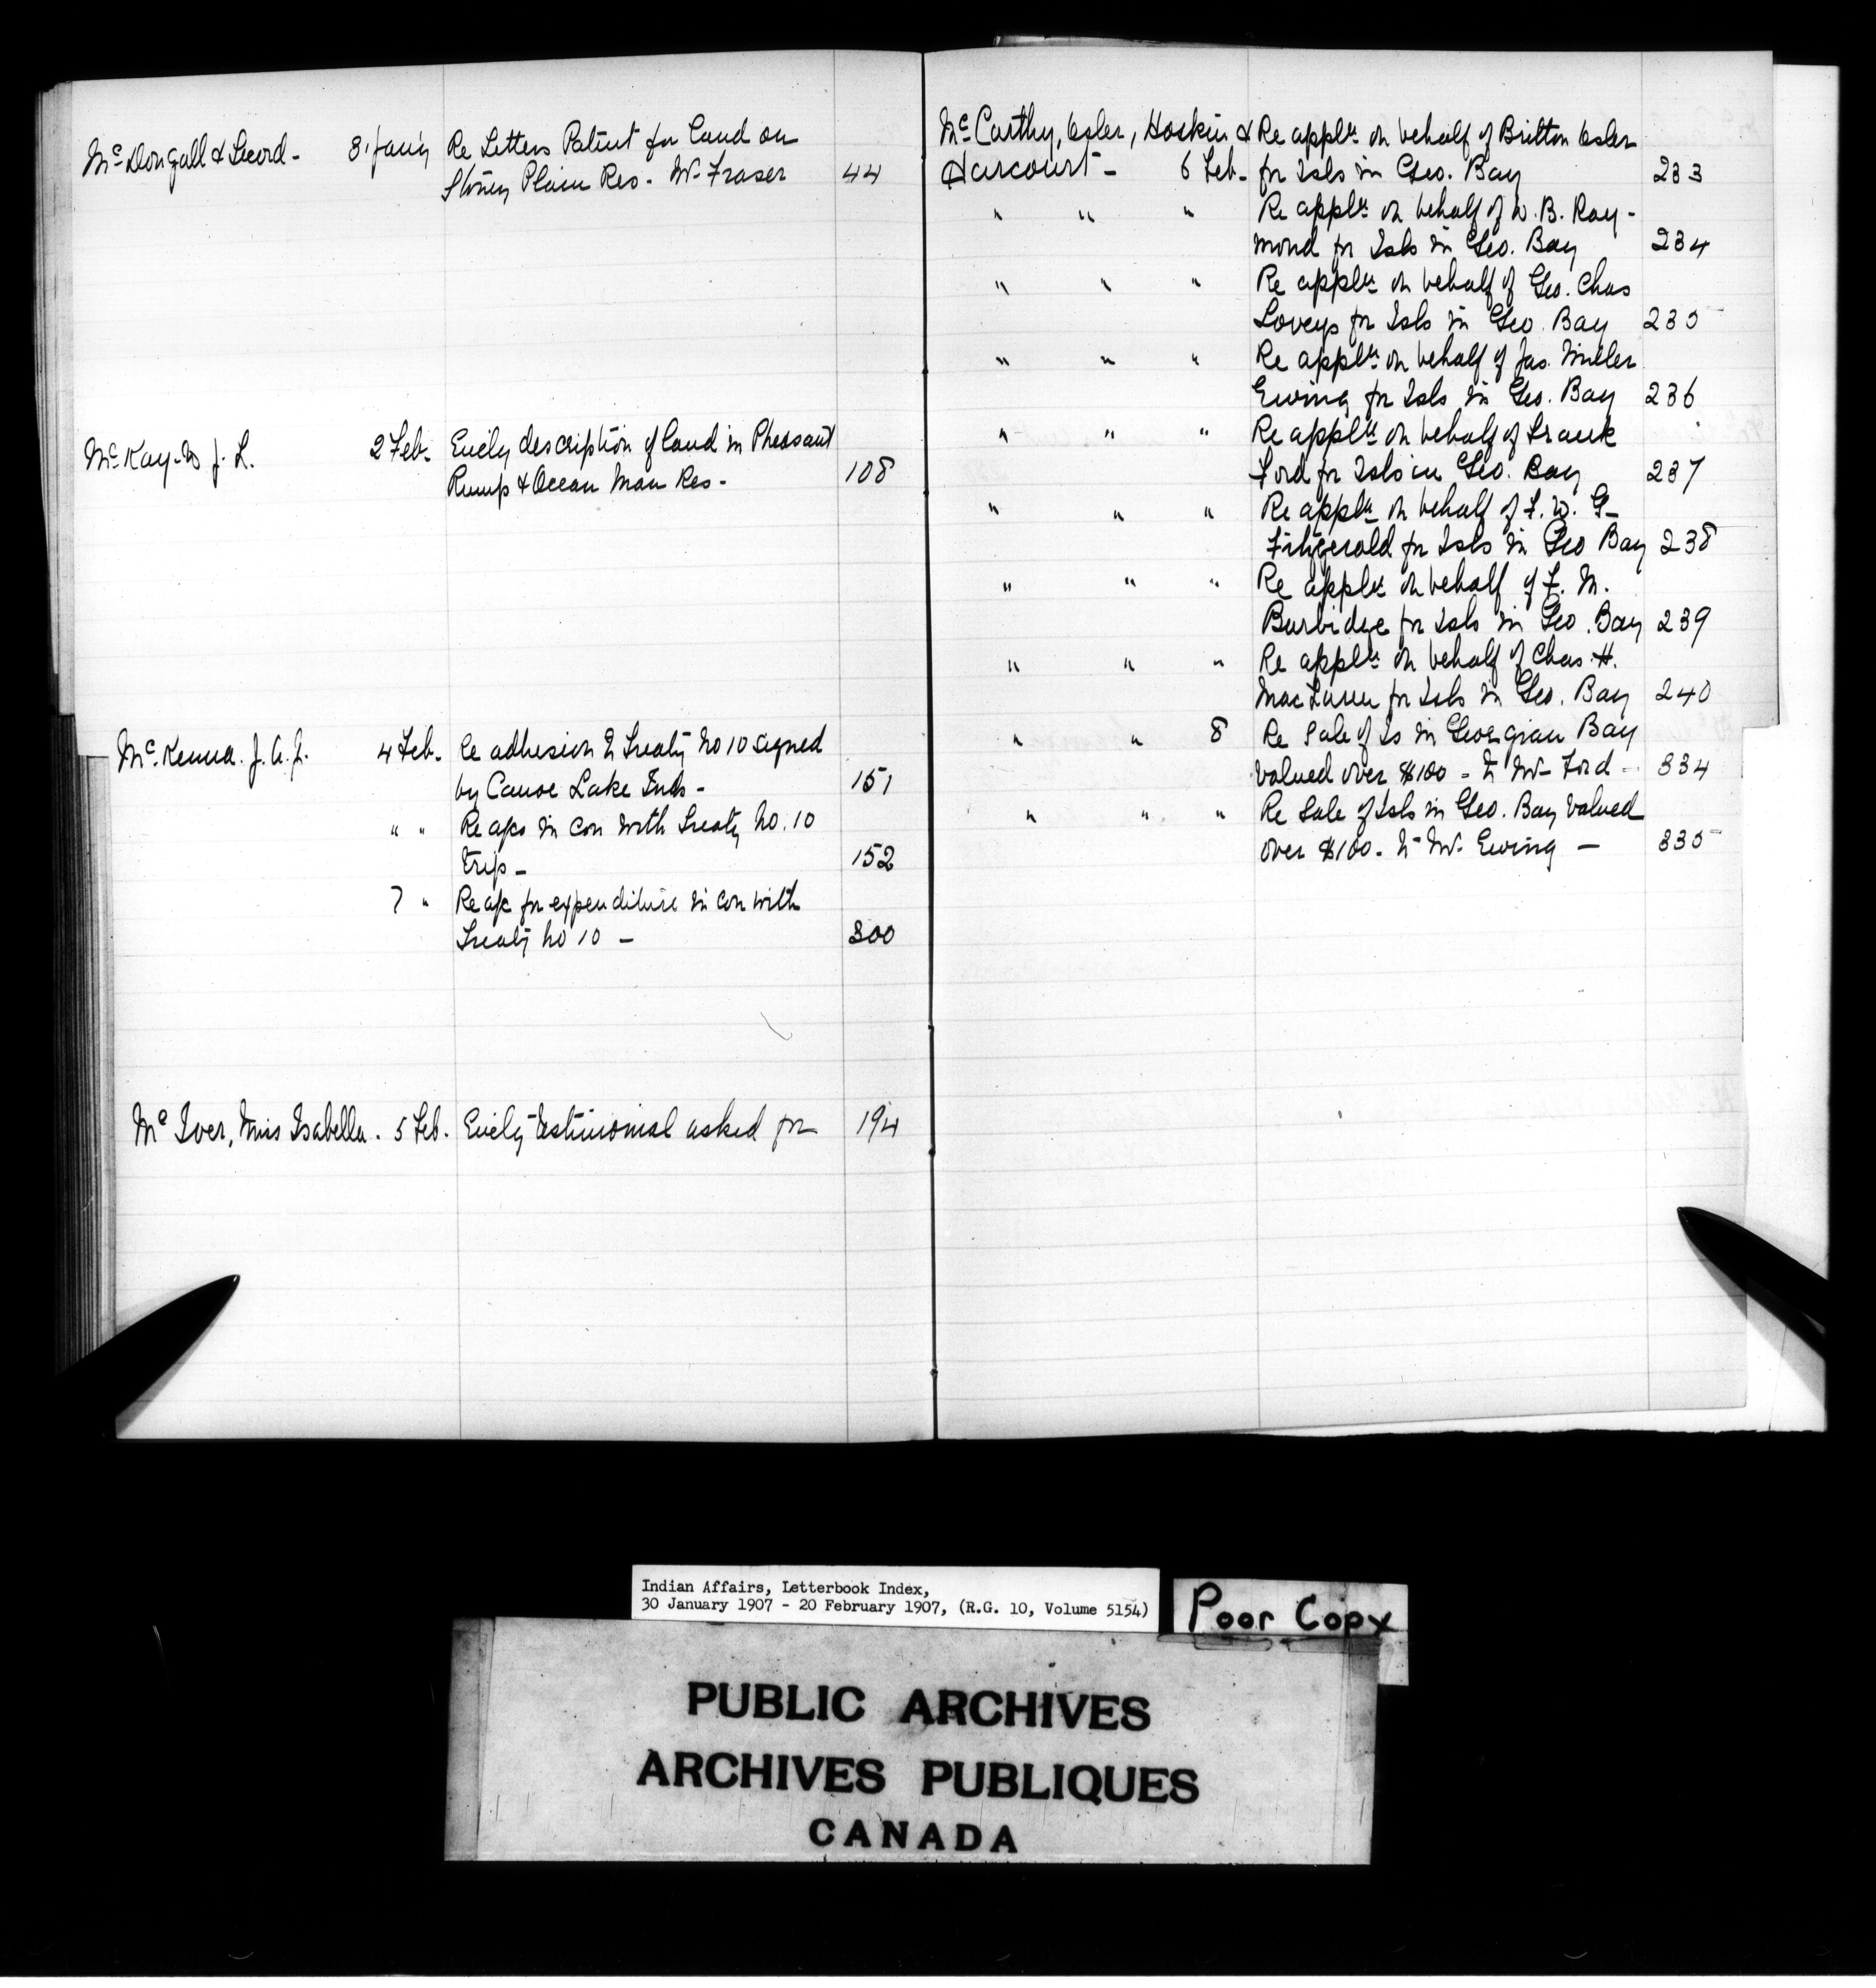 McDougall & Secord - 31 Jany Re Letters Patent for Land on
Stoney Plain Res - Mr Fraser 44
McKay - W J. L. 2 Feb. Encly description of land in Pheasant
Rump & Ocean Man Res - 108
McKenna. J. A. J. 4 Feb. Re adhesion to Treaty No 10 signed
by Canoe Lake Inds - 151
" " Re a/cs in con with Treaty No. 10
trip - 152
7 " Re a/c for expenditure in con with
Treaty No 10 - 300
McIver, Miss Isabella. 5 Feb. Encly testimonial asked for 194
McCarthy, Osler, Hoskin & Re appln on behalf of Britton Osler
Harcourt - 6 Feb - for Isls in Geo. Bay 233
" " " Re appln on behalf of W. B. Ray-
mond for Isls in Geo. Bay 234
" " " Re appln on behalf of Geo. Chas
Loveys for Isls in Geo. Bay 235
" " " Re appln on behalf of Jas. Miller
Ewing for Isls in Geo. Bay 236
" " " Re appln on behalf of Frank
Ford for Isls in Geo. Bay 237
" " " Re appln on behalf of F. W. G-
Fitzgerald for Isls in Geo Bay 238
" " " Re appln on behalf of F. M.
Burbidge for Isls in Geo. Bay 239
" " " Re appln on behalf of Chas. H.
MacLaren for Isls in Geo. Bay 240
" " 8 Re Sale of Is in Georgian Bay
valued over $100 - to Mr Ford - 334
" " " Re Sale of Isls in Geo. Bay valued
over $100 - to Mr. Ewing - 335
Indian Affairs, Letterbook Index,
30 January 1907 - 20 February 1907, (R.G. 10, Volume 5154)
Poor Copy
PUBLIC ARCHIVES
ARCHIVES PUBLIQUES
CANADA